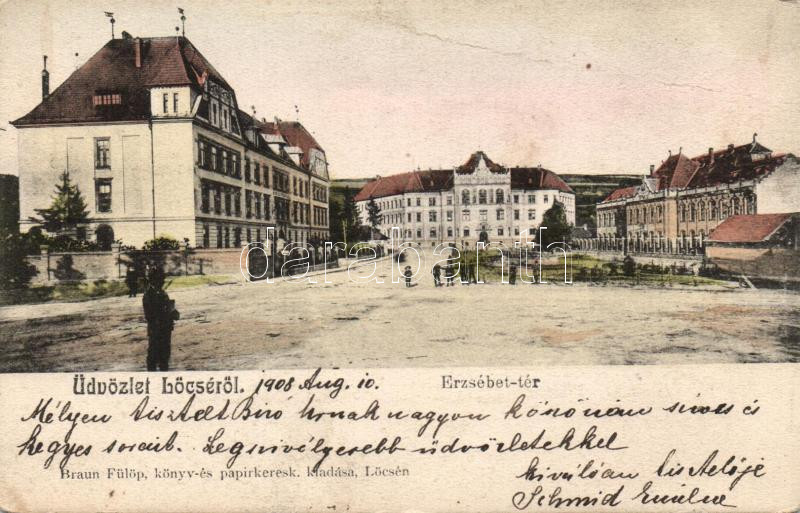 darabanth
Üdvözlet Lőcséről. 1908 Aug. 10. Erzsébet-tér
Mélyen tisztelt Biró Urnak nagyon köszönöm szives és
kegyes sorait. Legszivélyesebb üdvözletekkel
Braun Fülöp, könyv-és papirkeresk. kiadása, Löcsén
kiválóan tisztelője
Schmid Emilné